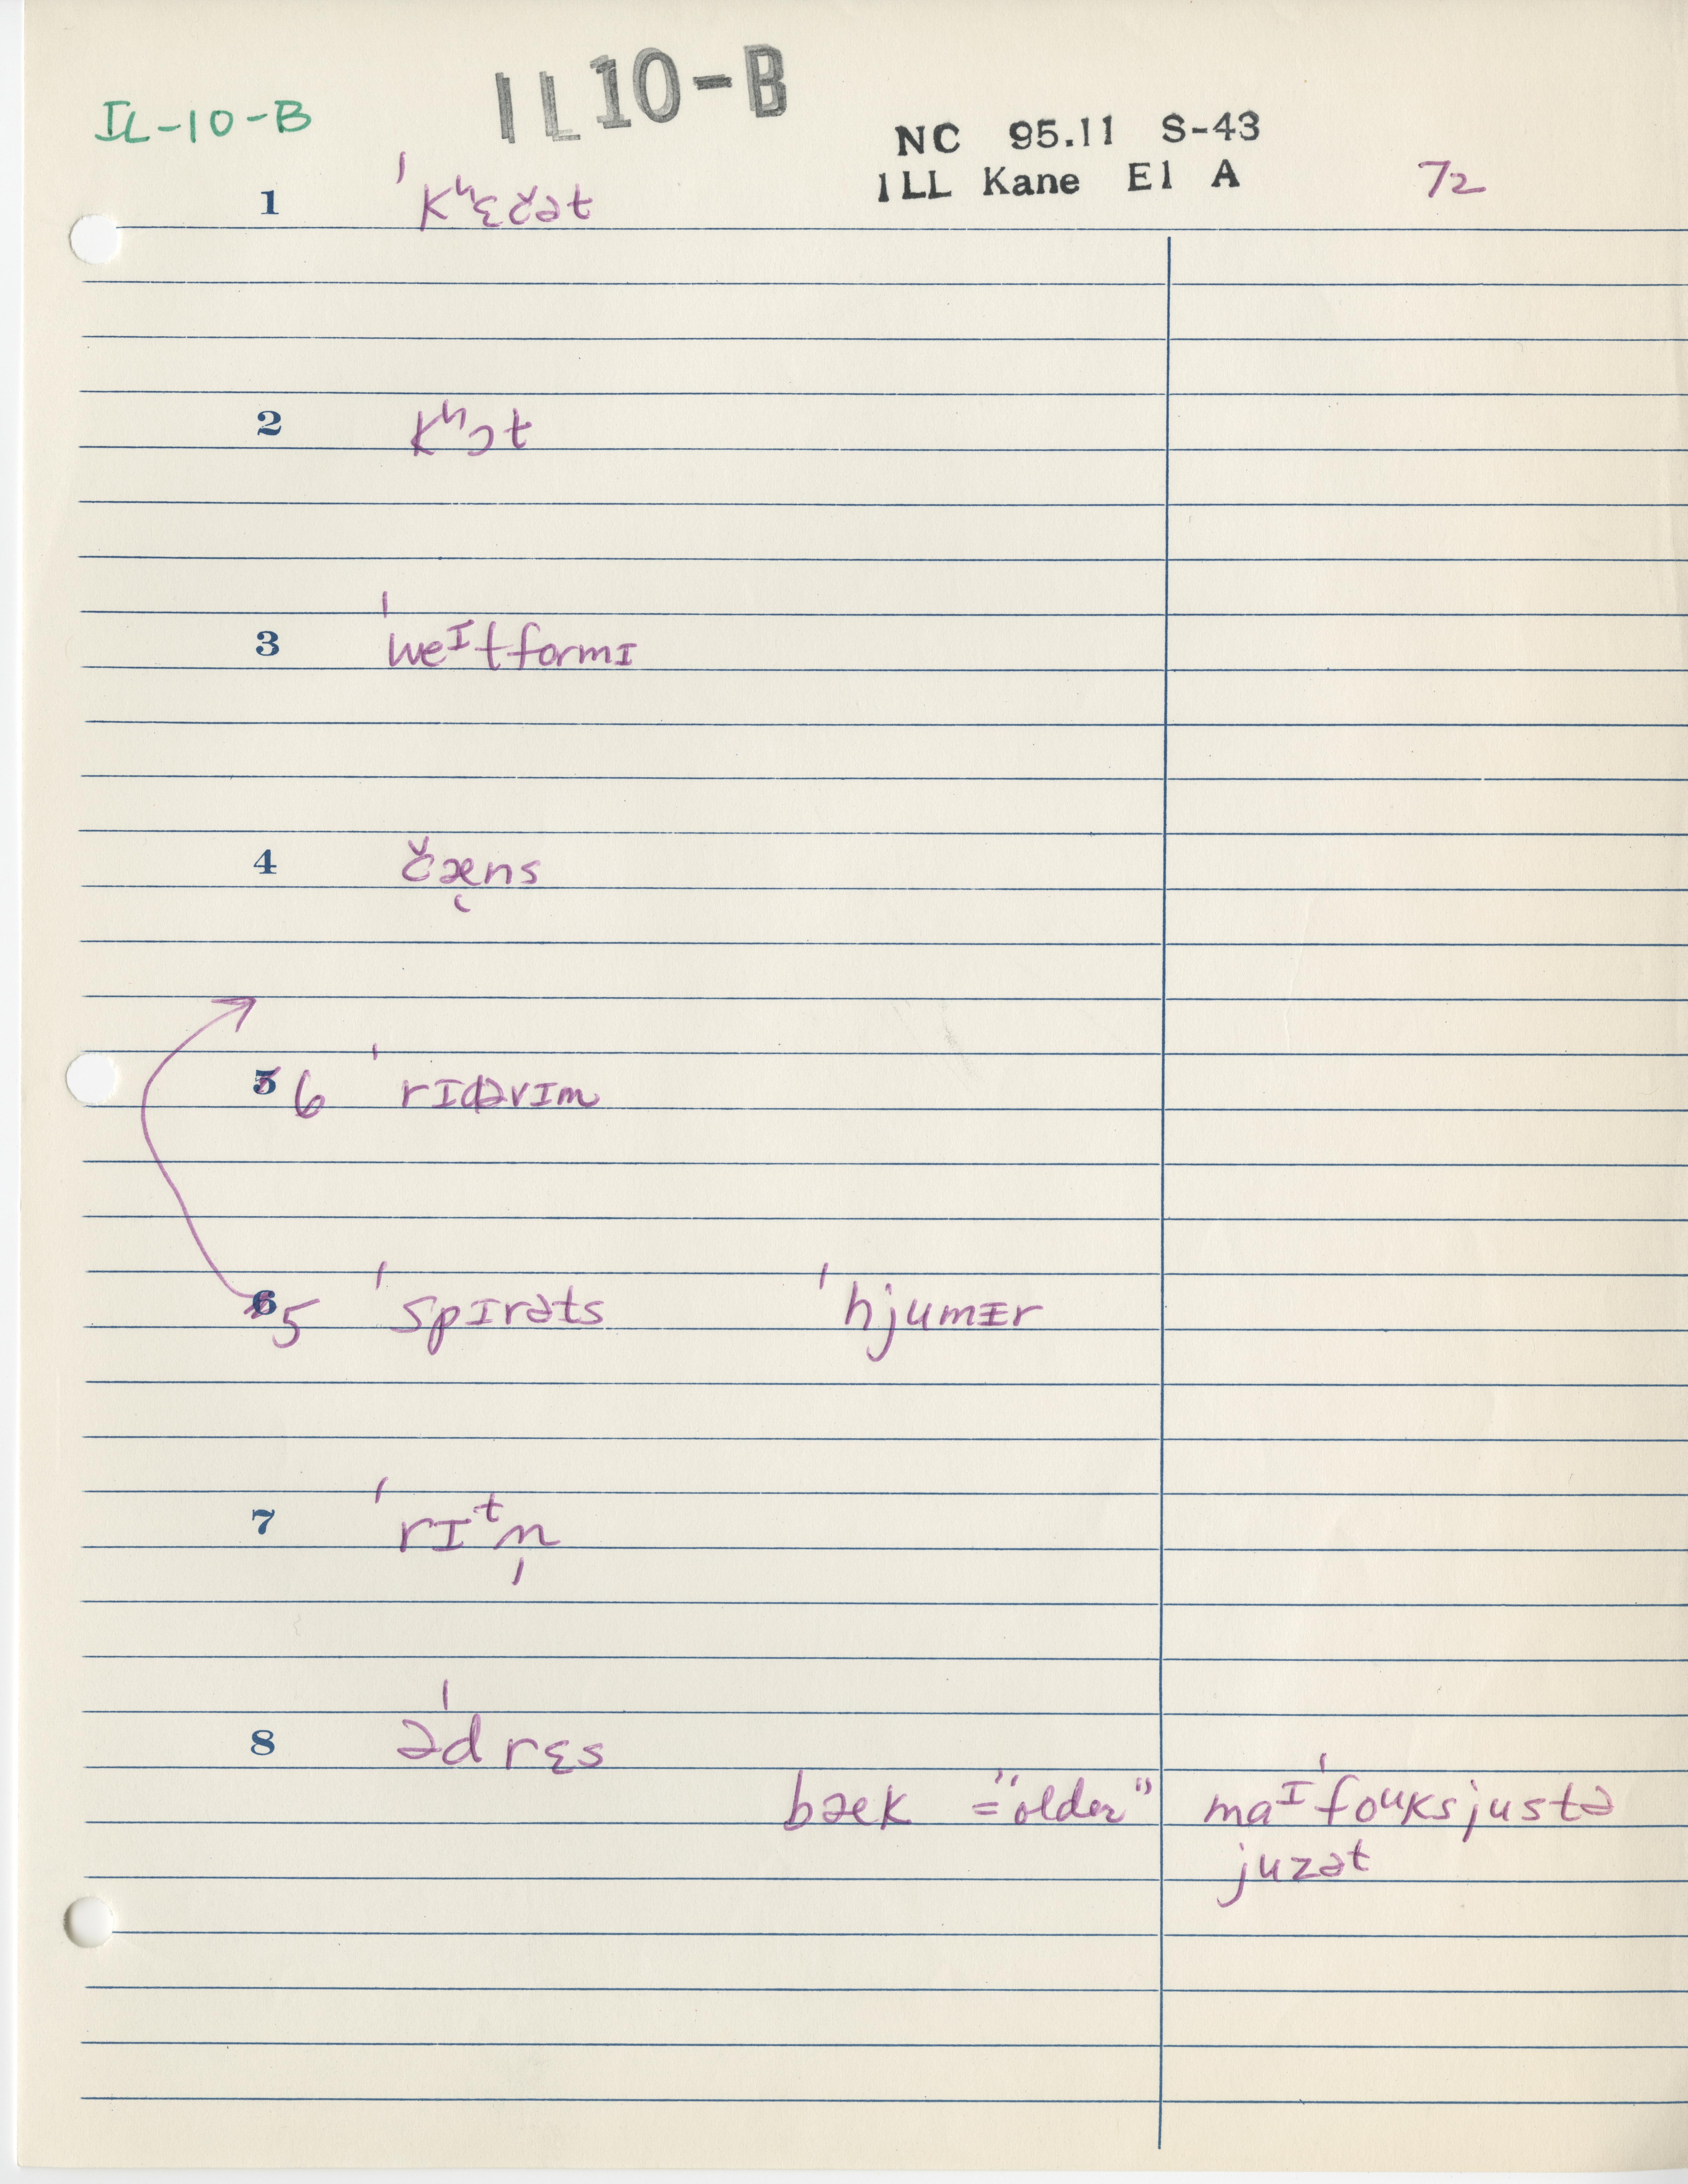 IL-10-B IL10-B
NC 95.11 S-43
ILL Kane El A 72
1 ˈkʰɛčət
2 kʰɔt
3 ˈweᴵtformɪ
4 čæ̨ns
5 6 ˈrɪdəvɪm
6 5 ˈspɪrəts ˈhjumɪr
7 ˈrɪᵗn̩
8 əˈdrɛs
bæk = "older" maᴵˈfoᵘksjustə
juzət